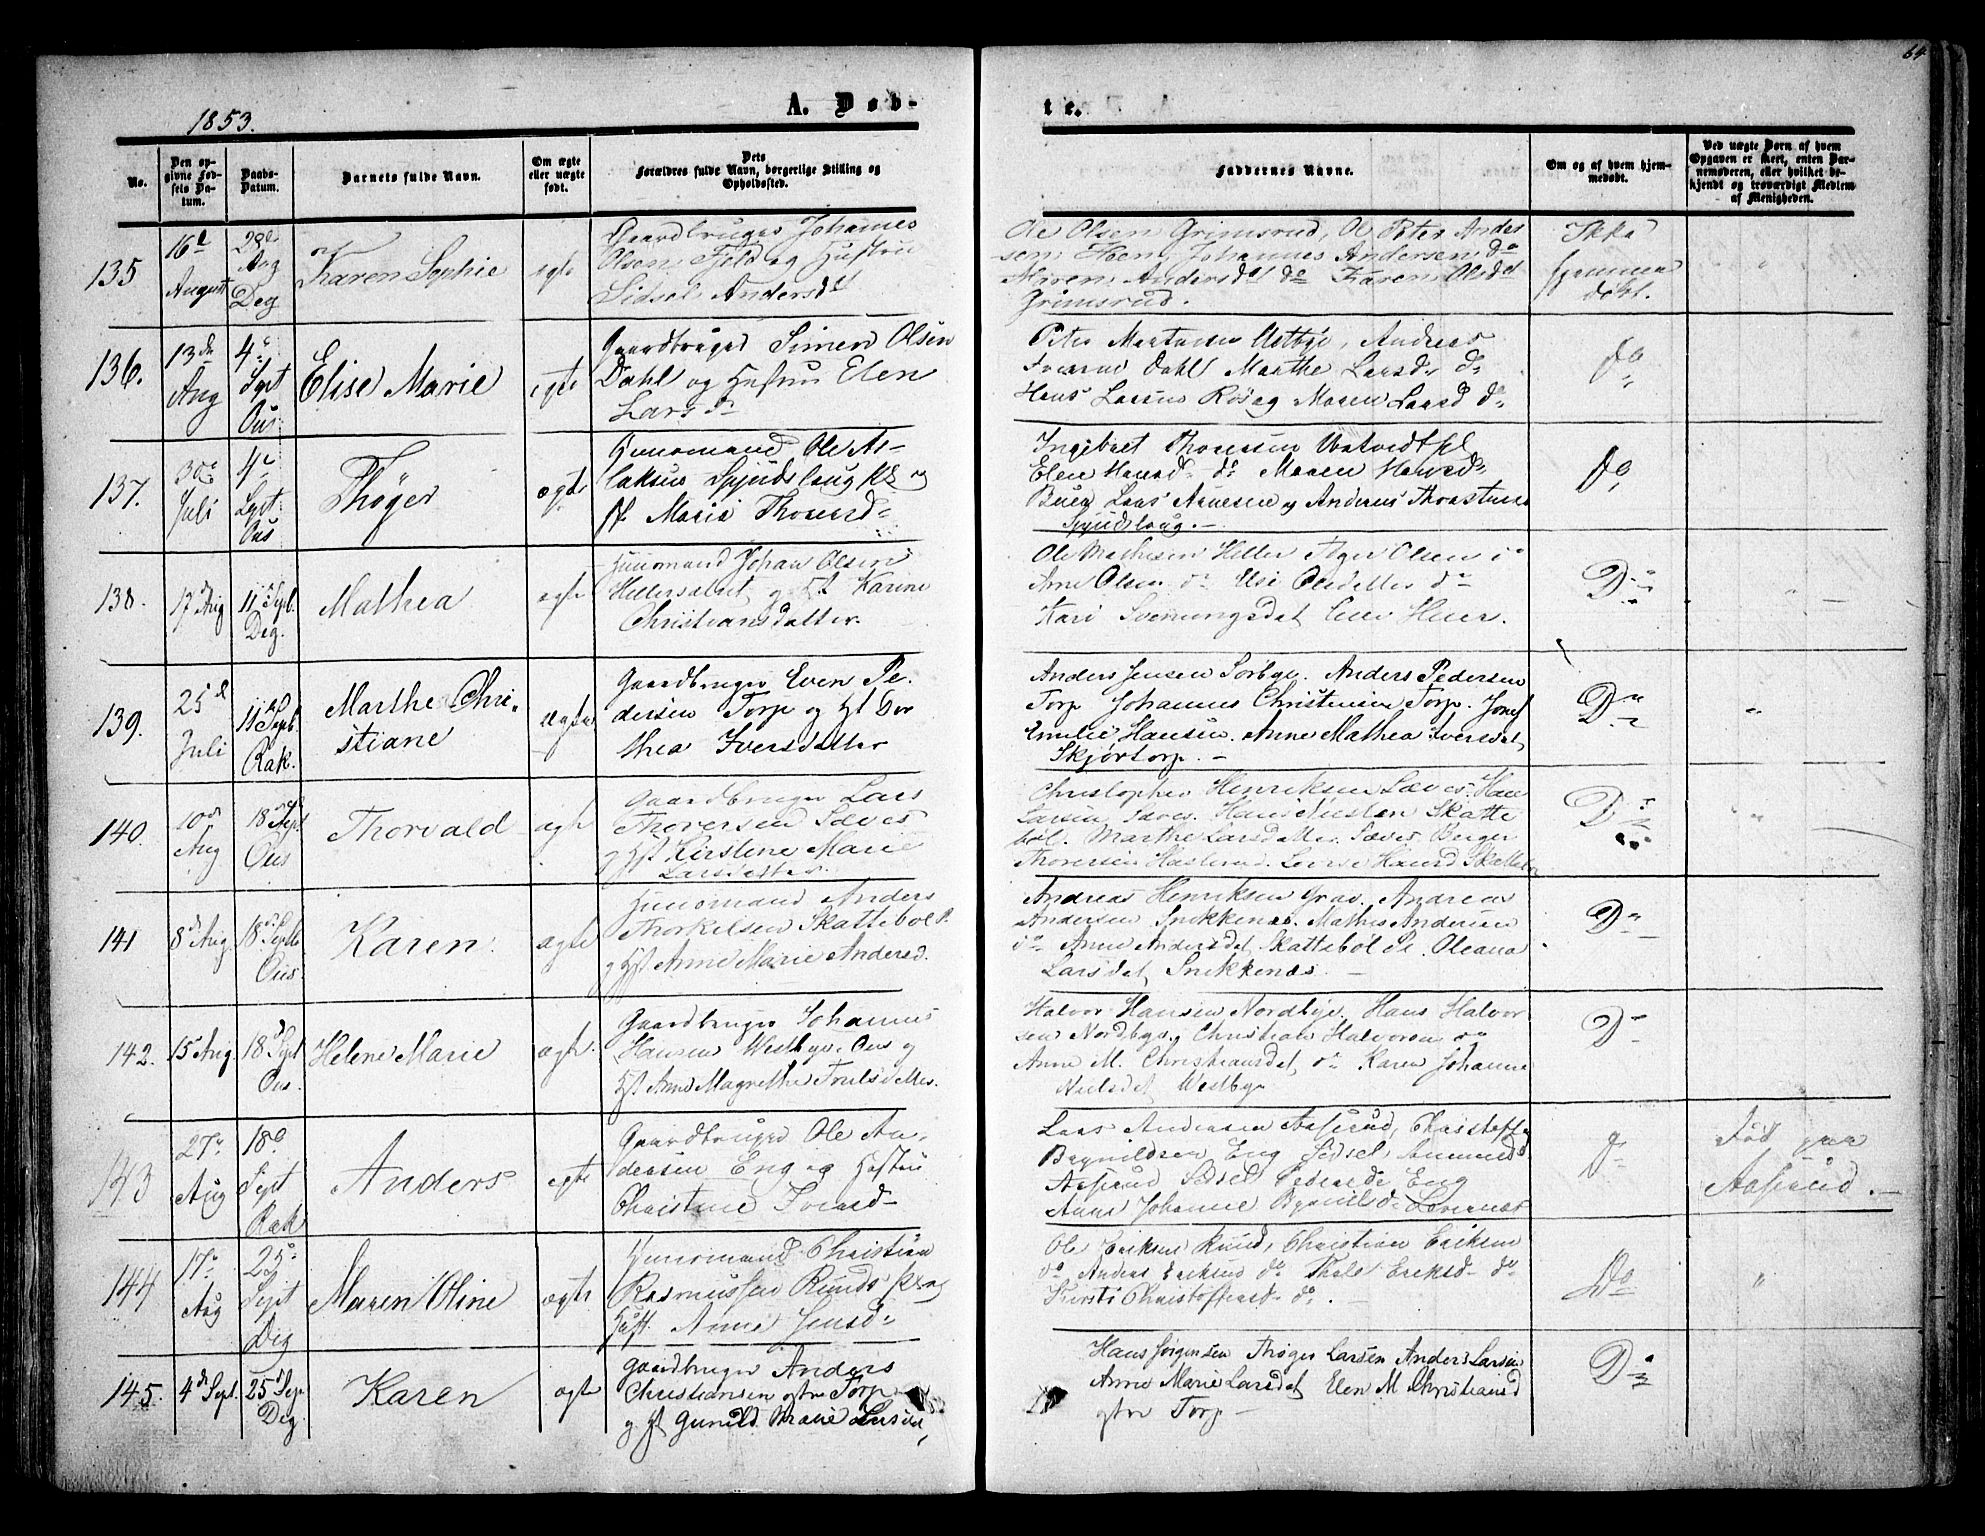 64
1853.
A. Døb-
te.
No.
Den op-
givne Fød-
sels Da-
tum.
Daabs-
Datum.
Barnets fulde Navn.
Om ægte
eller uægte
født.
Dets
Forældres fulde Navn, borgerlige Stilling og
Opholdssted.
Faddernes Navne.
Om og af hvem hjem-
medøbt.
Ved uægte Børn af hvem
Opgaven er skeet, enten Bar-
nemoderen, eller hvilket be-
kjendt og troværdigt Medlem
af Menigheden.
135
16d
August
28d
Aug
Deg
Karen Sophie
egte
Gaardbruger Johannes
Olsen Fjeld og Hustru
Sidsel Andersdt
Ole Olsen Grimsrud, Ole Peter Ander
sen Hoen, Johannes Andersen do
Maren Andersdat do Karen Olsdt
Grimsrud.
Ikke
hjemme
døbt.
136.
13de
Aug
4de
Sept
Ous
Elise Marie
egte
Gaardbruger Simen Olsen
Dahl og Hustru Elen
Larsd
Peter Mortensen Westbye, Andreas
Iversen Dahl Marthe Larsd do
Hans Larsen Røs og Maren Larsd do
do
137.
30
Juli
4
Sept
Ous
Thøger
ægte
Huusmand Ole As-
laksen Spjudslaug og
Maria Thoresd
Ingebret Thoresen
Elen Hansd do Maren Hansd
Buer Lars Arnesen og Andreas Thorstensen
Spjudslaug.
do
138.
17d Aug
11d Sepb.
Deg.
Mathea
ægte
Huusmand Johan Olsen
og Karine
Christiansdatter.
Ole Mathisen Heller Olsen
Arne Olsen do Else Olesdatter do
Kari Svenningsdat
Do
139.
25d
Juli
11d Sepb.
Rak.
Marthe Chri-
stiane
ægte
Gaardbruger Even Pe-
dersen Torp og Hst Dor
thea Iversdatter
Anders Jensen Sørbye. Anders Pedersen
Torp Johannes Christensen Torp. Josef
Emilie Hansen. Anne Mathea Iversdat
Skjørtorp.
Do
140.
10d
Aug
18d Sept
Ous
Thorvald
ægte
Gaardbruger Lars
Thoresen Sæves
og Hst Kirstine Marie
Larsdatter.
Christopher Henriksen Sæves. Hans
Larsen Sæves. Hans Skatte
bøl. Marthe Larsdatter Sæves. Berger
Thoresen Haslerud. Lovise Hansd Skattebøl
Do
141
8d Aug
18d Septb
Ous.
Karen
ægte
Huusmand Anders
Thorkelsen Skattebøl
og Hst Anne Marie Andersd.
Andreas Henriksen Grav. Andreas
Andersen Snekkenæs. Mathis Andersen
do Anne Andersdat Skattebøl Oleana
Larsdat Snekkenæs.
Do
142.
15 Aug
18d Sept
Ous
Helene Marie
ægte.
Gaardbruger Johannes
Hansen Westbye Ous og
Hst Anne Magrethe Trulsdatter.
Halvor Hansen Nordbye. Hans Halvor
sen Nordbye, Christian Halvorsen do
Anne M. Christiansdat, do Karen Johanne
Nielsdat Westbye
Do
143
27
Aug
18d
Sept
Rak
Anders
egte
Gaardbruger Ole An-
dersen Eng og Hustru
Christine Iversd
Lars Andersen Aaserud, Christoffer
Brynildsen Eng Sidsel Amunds
Aaserud Sidsel Pedersd Eng
Anne Johanne Brynilsd
do
Fød paa
Aaserud.
144
17
Aug
25
Sept
Deg
Maren Oline
ægte
Huusmand Christian
Rasmussen Ruud og
Hust. Anne Jensd
Ole Eriksen Ruud, Christian Eriksen
do Anders Eriksen do Thale Eriksd do
Kersti Christoffersd do.
Do
145.
4d Sept.
25d Sep.
Deg
Karen
ægte
Gaardbruger Anders
Christiansen østre Torp
og Hst Gunild Marie Larsdat,
Hans Jørgensen Thøger Larsen Anders Larsen
Anne Marie Larsdat Elen M Christiansd
østre Torp
Do